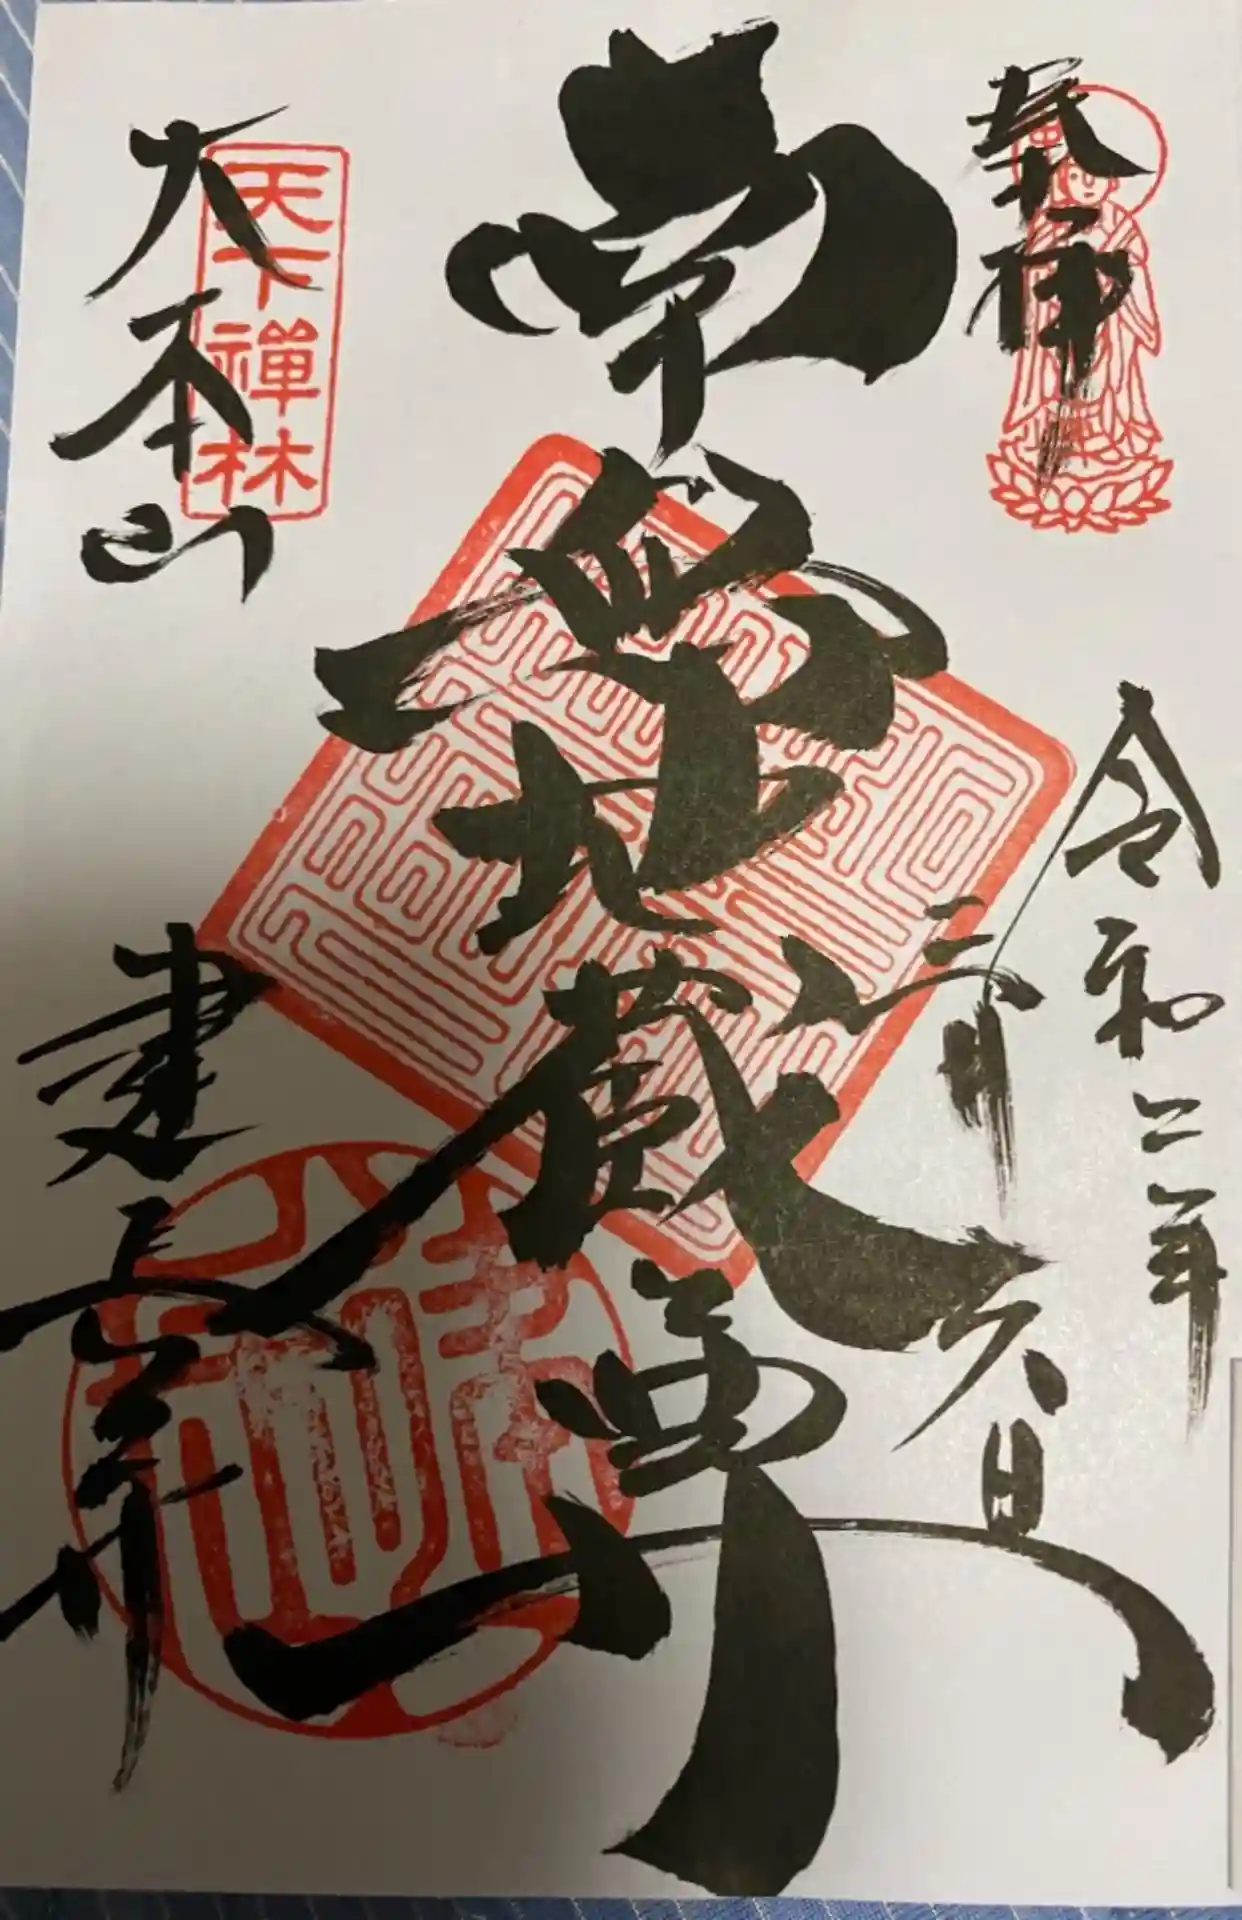 奉拝
令和二年
三月
六日
南無地蔵尊
天下禅林
大本山
建長寺